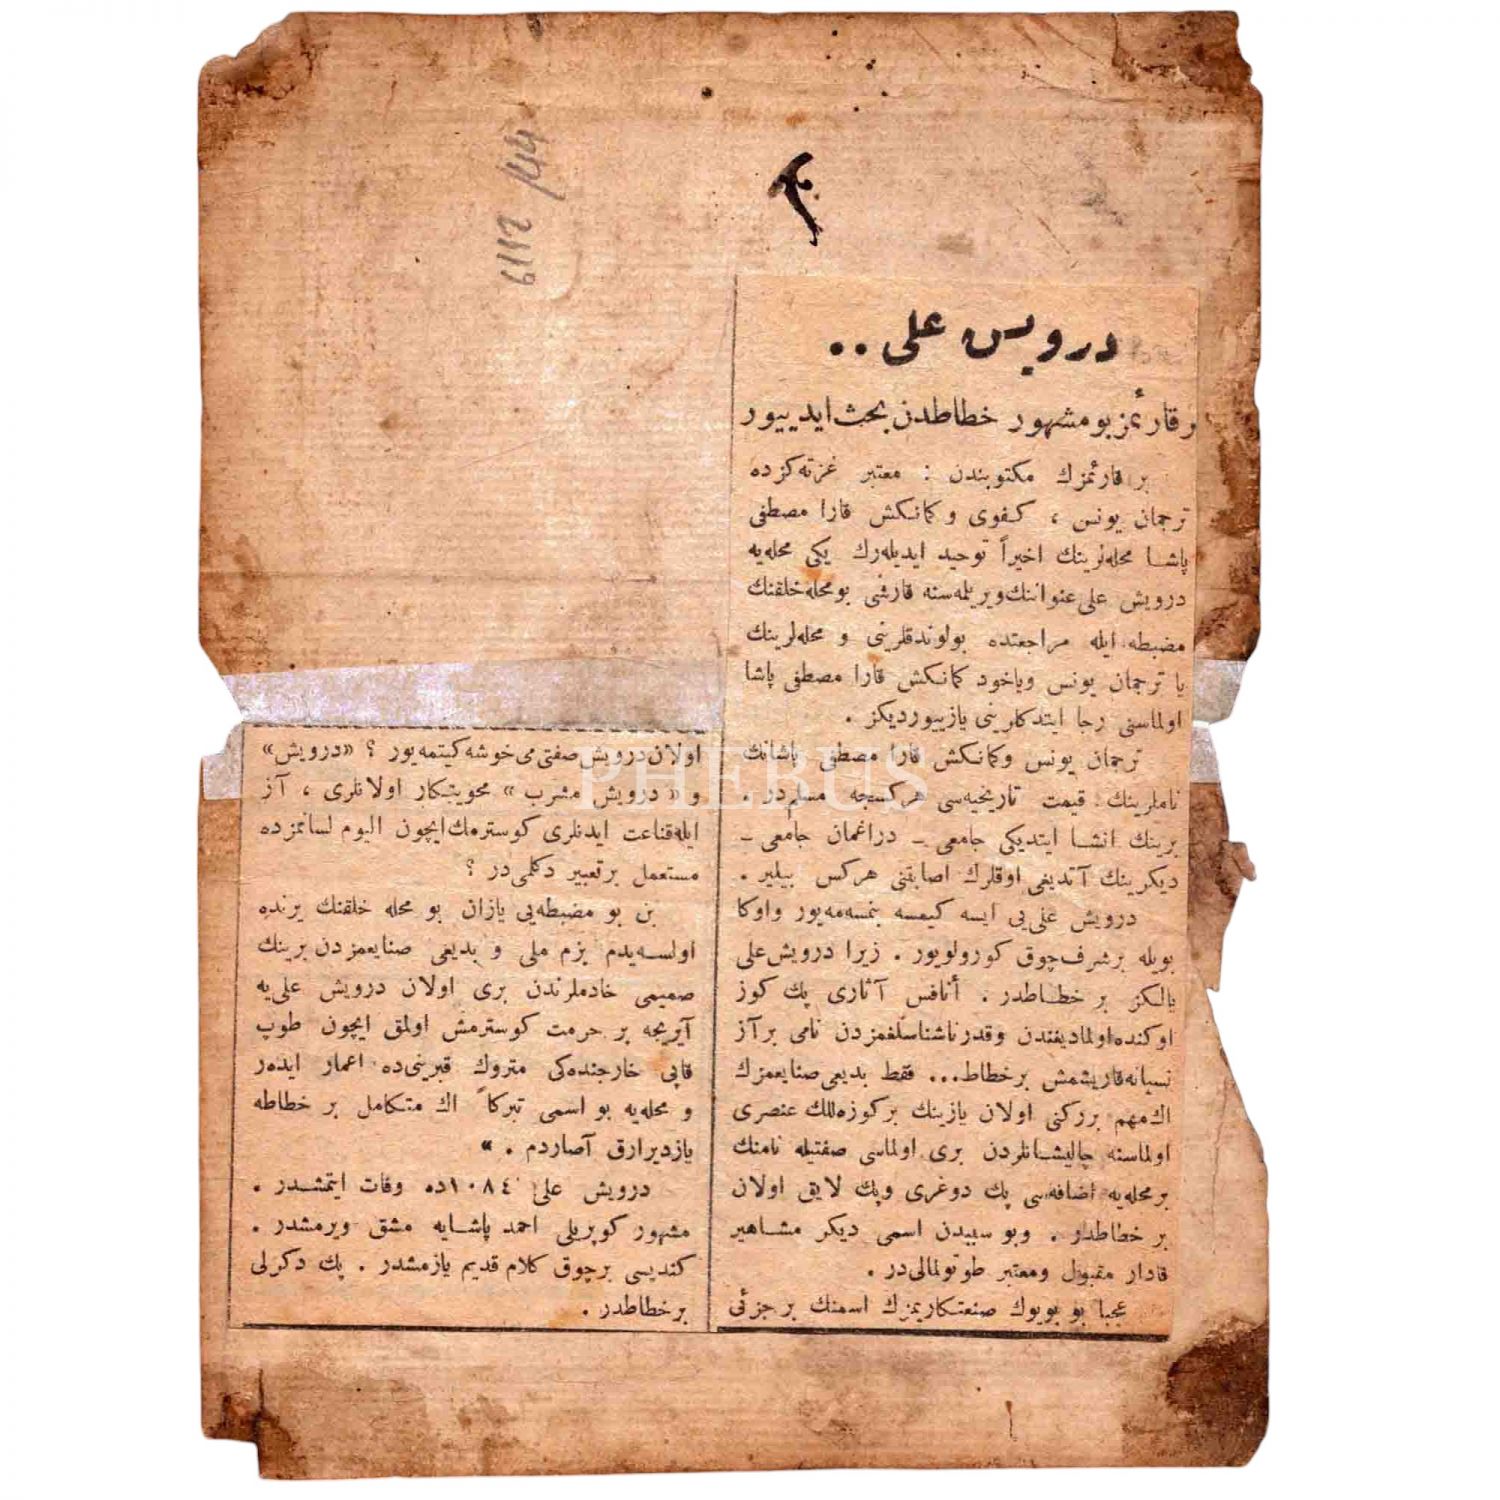 6112 / 44
درويش على ..
بر قارئمز بو مشهور خطاطدن بحث ايدييور
بر قارئمزك مكتوبندن : معتبر غزته‌كزده
ترجمان يونس ، كفوى و كمانكش قارا مصطفى
پاشا محله‌لرينك اخيراً توحيد ايديله‌رك يكى محله‌يه
درويش على عنواننك ويريلمه‌سنه قارشى بو محله خلقنك
مضبطه ايله مراجعتده بولوندقلرينى و محله‌لرينك
يا ترجمان يونس وياخود كمانكش قارا مصطفى پاشا
اولماسنى رجا ايتدكلرينى يازييورديكز .
ترجمان يونس وكمانكش قارا مصطفى پاشانك
ناملرينك قيمت تاريخيه‌سى هركسجه مسلم‌در .
برينك انشا ايتديكى جامعى ـ دراغمان جامعى ـ
ديكرينك آتديغى اوقلرك اصابتنى هركس بيلير .
درويش على‌يى ايسه كيمسه بنمسه‌مه‌يور و اوكا
بويله بر شرف چوق كورولويور . زيرا درويش على
يالكز بر خطاطدر . أنافس آثارى پك كوز
اوكنده اولماديغندن وقدرناشناسلغمزدن نامى بر آز
نسيانه قاريشمش بر خطاط... فقط بديعى صنايعمزك
اك مهم بر ركنى اولان يازينك بر كوزه‌للك عنصرى
اولماسنه چاليشانلردن برى اولماسى صفتيله نامنك
بر محله‌يه اضافه‌سى پك دوغرى وپك لايق اولان
بر خطاطدر . وبو سببدن اسمى ديكر مشاهير
قادار مقبول ومعتبر طوتولمالى‌در .
عجبا بو بويوك صنعتكاريمزك اسمنك بر جزئى
اولان درويش صفتى مى خوشه كيتمه‌يور ؟ «درويش»
و « درويش مشرب » محويتكار اولانلرى ، آز
ايله قناعت ايدنلرى كوسترمك ايچون اليوم لسانمزده
مستعمل بر تعبير دكلمى‌در ؟
بن بو مضبطه‌يى يازان بو محله خلقنك يرنده
اولسه‌يدم بزم ملى و بديعى صنايعمزدن برينك
صميمى خادملرندن برى اولان درويش على‌يه
آيريجه بر حرمت كوسترمش اولمق ايچون طوپ
قاپى خارجنده‌كى متروك قبرينى‌ده اعمار ايده‌ر
و محله‌يه بو اسمى تبركاً اك متكامل بر خطاطه
يازديرارق آصاردم . »
درويش على ١٠٨٤ ده وفات ايتمشدر .
مشهور كوپريلى احمد پاشايه مشق ويرمشدر .
كنديسى بر چوق كلام قديم يازمشدر . پك دكرلى
بر خطاطدر .